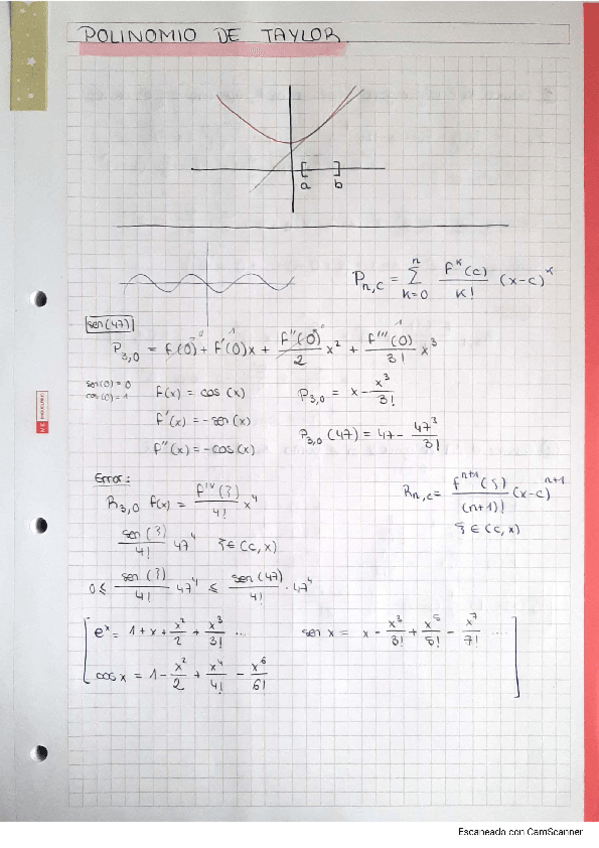 POLINOMIO DE TAYLOR
a b
P_{n,c} = \sum_{k=0}^{n} \frac{f^k(c)}{k!} (x-c)^k
sen(47)
P_{3,0} = f(0)^0 + f'(0)^1 x + \frac{f''(0)^0}{2} x^2 + \frac{f'''(0)^1}{3!} x^3
sen(0) = 0
cos(0) = 1
f(x) = cos(x)
P_{3,0} = x - \frac{x^3}{3!}
f'(x) = -sen(x)
P_{3,0}(47) = 47 - \frac{47^3}{3!}
f''(x) = -cos(x)
Error:
R_{3,0} f(x) = \frac{f^{IV}(ξ)}{4!} x^4
R_{n,c} = \frac{f^{n+1}(ξ)}{(n+1)!} (x-c)^{n+1}
ξ ∈ (c,x)
\frac{sen(ξ)}{4!} 47^4 ξ ∈ (c,x)
0 ≤ \frac{sen(ξ)}{4!} 47^4 ≤ \frac{sen(47)}{4!} · 47^4
e^x = 1 + x + \frac{x^2}{2} + \frac{x^3}{3!} ...
sen x = x - \frac{x^3}{3!} + \frac{x^5}{5!} - \frac{x^7}{7!} ...
cos x = 1 - \frac{x^2}{2} + \frac{x^4}{4!} - \frac{x^6}{6!}
Escaneado con CamScanner